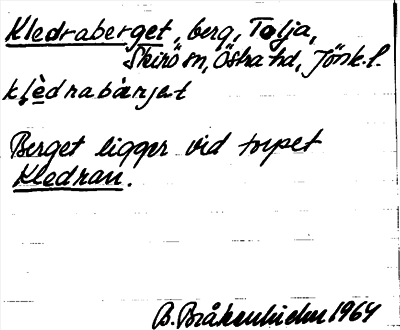 Kledraberget, berg, Tolja,
Skirö sn, Östra hd, Jönk. l.
klèdrabàrjet
Berget ligger vid torpet
Kledran.
B. Bråkenhielm 1964